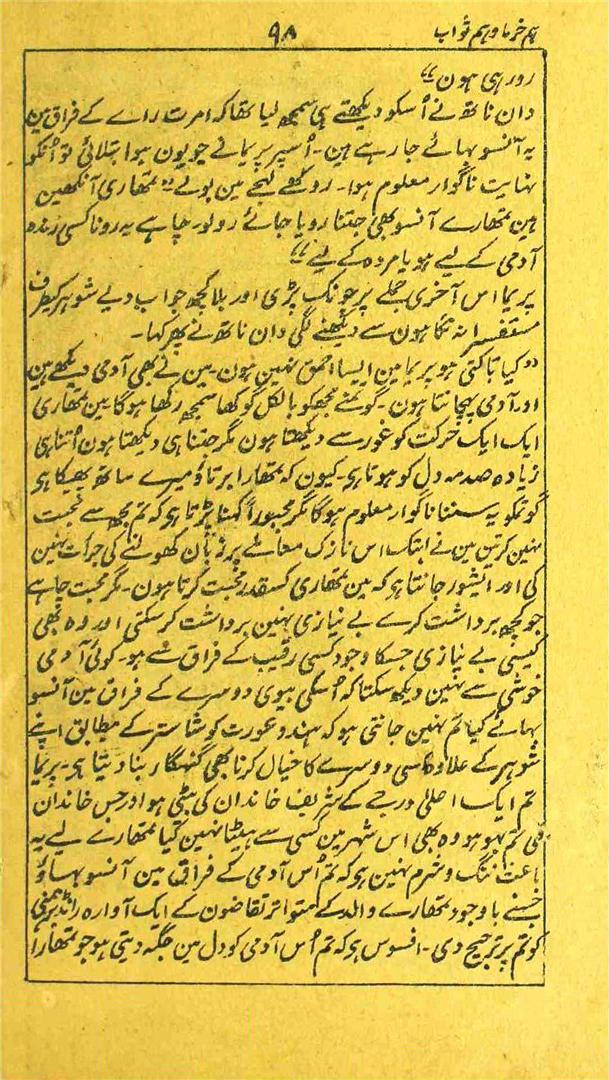 ہم خرما و ہم ثواب ۹۸
رو رہی ہون‘‘
دان ناتھ نے اُسکو دیکھتے ہی سمجھ لیا تھا کہ امرت راے کے فراق مین
یہ آنسو بہائے جا رہے ہین۔ اُسپر پریمانے جو یون ہوا بتلائی تو اُنکو
نہایت ناگوار معلوم ہوا۔ روکھے لہجے مین بولے ’’تمھاری آنکھین
ہین تمھارے آنسو بھی جتنا رویا جائے رولو۔ چاہے یہ رونا کسی زندہ
آدمی کے لیے ہو یا مردہ کے لیے‘‘
پریما اس آخری جملے پر چونک پڑی اور بلا کچھ جواب دیے شوہر کیطرف
مستفسرانہ نگاہون سے دیکھنے لگی دان ناتھ نے پھر کہا۔
’’کیا تاکتی ہو پریما مین ایسا احمق نہین ہون۔ مین نے بھی آدمی دیکھے ہین
اور آدمی پہچانتا ہون۔ گو تمنے مجھکو بالکل گوکھا سمجھ رکھا ہوگا مین تمھاری
ایک ایک حرکت کو غور سے دیکھتا ہون مگر جتنا ہی دیکھتا ہون اُتنا ہی
زیادہ صدمہ دل کو ہوتا ہی۔ کیون کہ تمھارا برتاؤ میرے ساتھ پھیکا ہی
گو تمکو یہ سننا ناگوار معلوم ہوگا مگر مجبوراً کہنا پڑتا ہی کہ تم مجھ سے محبت
نہین کرتین مین نے ابتک اس نازک معاملے پر زبان کھولنے کی جرأت نہین
کی اور ایشور جانتا ہی کہ مین تمھاری کسقدر محبت کرتا ہون۔ مگر محبت چاہے
جو کچھ برداشت کرے بے نیازی نہین برداشت کرسکتی اور وہ بھی
کیسی بے نیازی جسکا وجود کسی رقیب کے فراق سے ہو۔ کوئی آدمی
خوشی سے نہین دیکھ سکتا کہ اُسکی بیوی دوسرے کے فراق مین آنسو
بہائے کیا تم نہین جانتی ہو کہ ہندو عورت کو شاستر کے مطابق اپنے
شوہر کے علاوہ کسی دوسرے کا خیال کرنا بھی گنہگار بنا دیتا ہی۔ پریما
تم ایک اعلیٰ درجے کے شریف خاندان کی بیٹی ہو اور جس خاندان
کی تم بہو ہو وہ بھی اس شہر مین کسی سے ہیٹا نہین کیا تمھارے لیے یہ
باعث ننگ و شرم نہین ہی کہ تم اُس آدمی کے فراق مین آنسو بہاؤ
جسنے باوجود تمھارے والد کے متواتر تقاضون کے ایک آوارہ رانڈ برہمنی
کو تم پر ترجیح دی۔ افسوس ہی کہ تم اُس آدمی کو دل مین جگہ دیتی ہو جو تمھارا